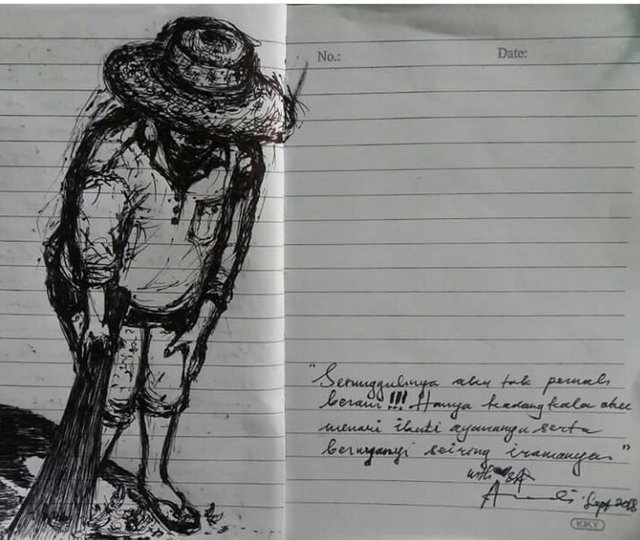 No.:
Date:
"Sesungguhnya aku tak pernah
berani !!! Hanya kadangkala aku
menari ikuti ayunannya serta
bernyanyi seiring iramanya"
Sept 2018
KKY